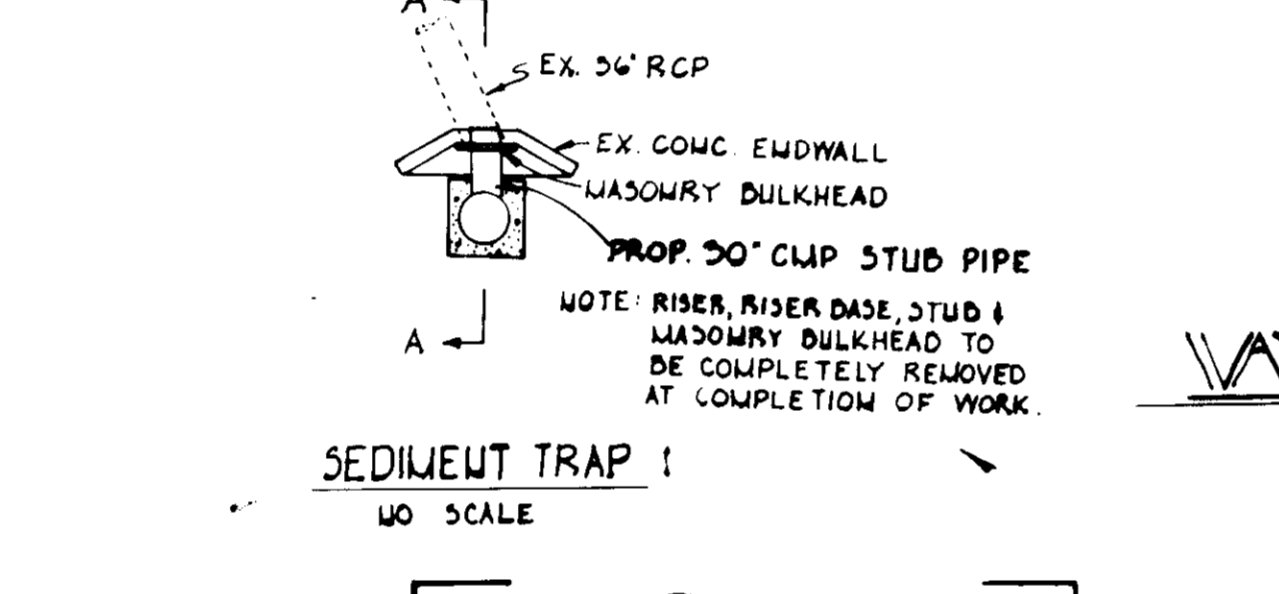 A
EX. 36" RCP
EX. CONC. ENDWALL
MASONRY BULKHEAD
PROP. 30" CMP STUB PIPE
NOTE: RISER, RISER BASE, STUB &
MASONRY BULKHEAD TO
BE COMPLETELY REMOVED
AT COMPLETION OF WORK.
A
SEDIMENT TRAP 1
NO SCALE